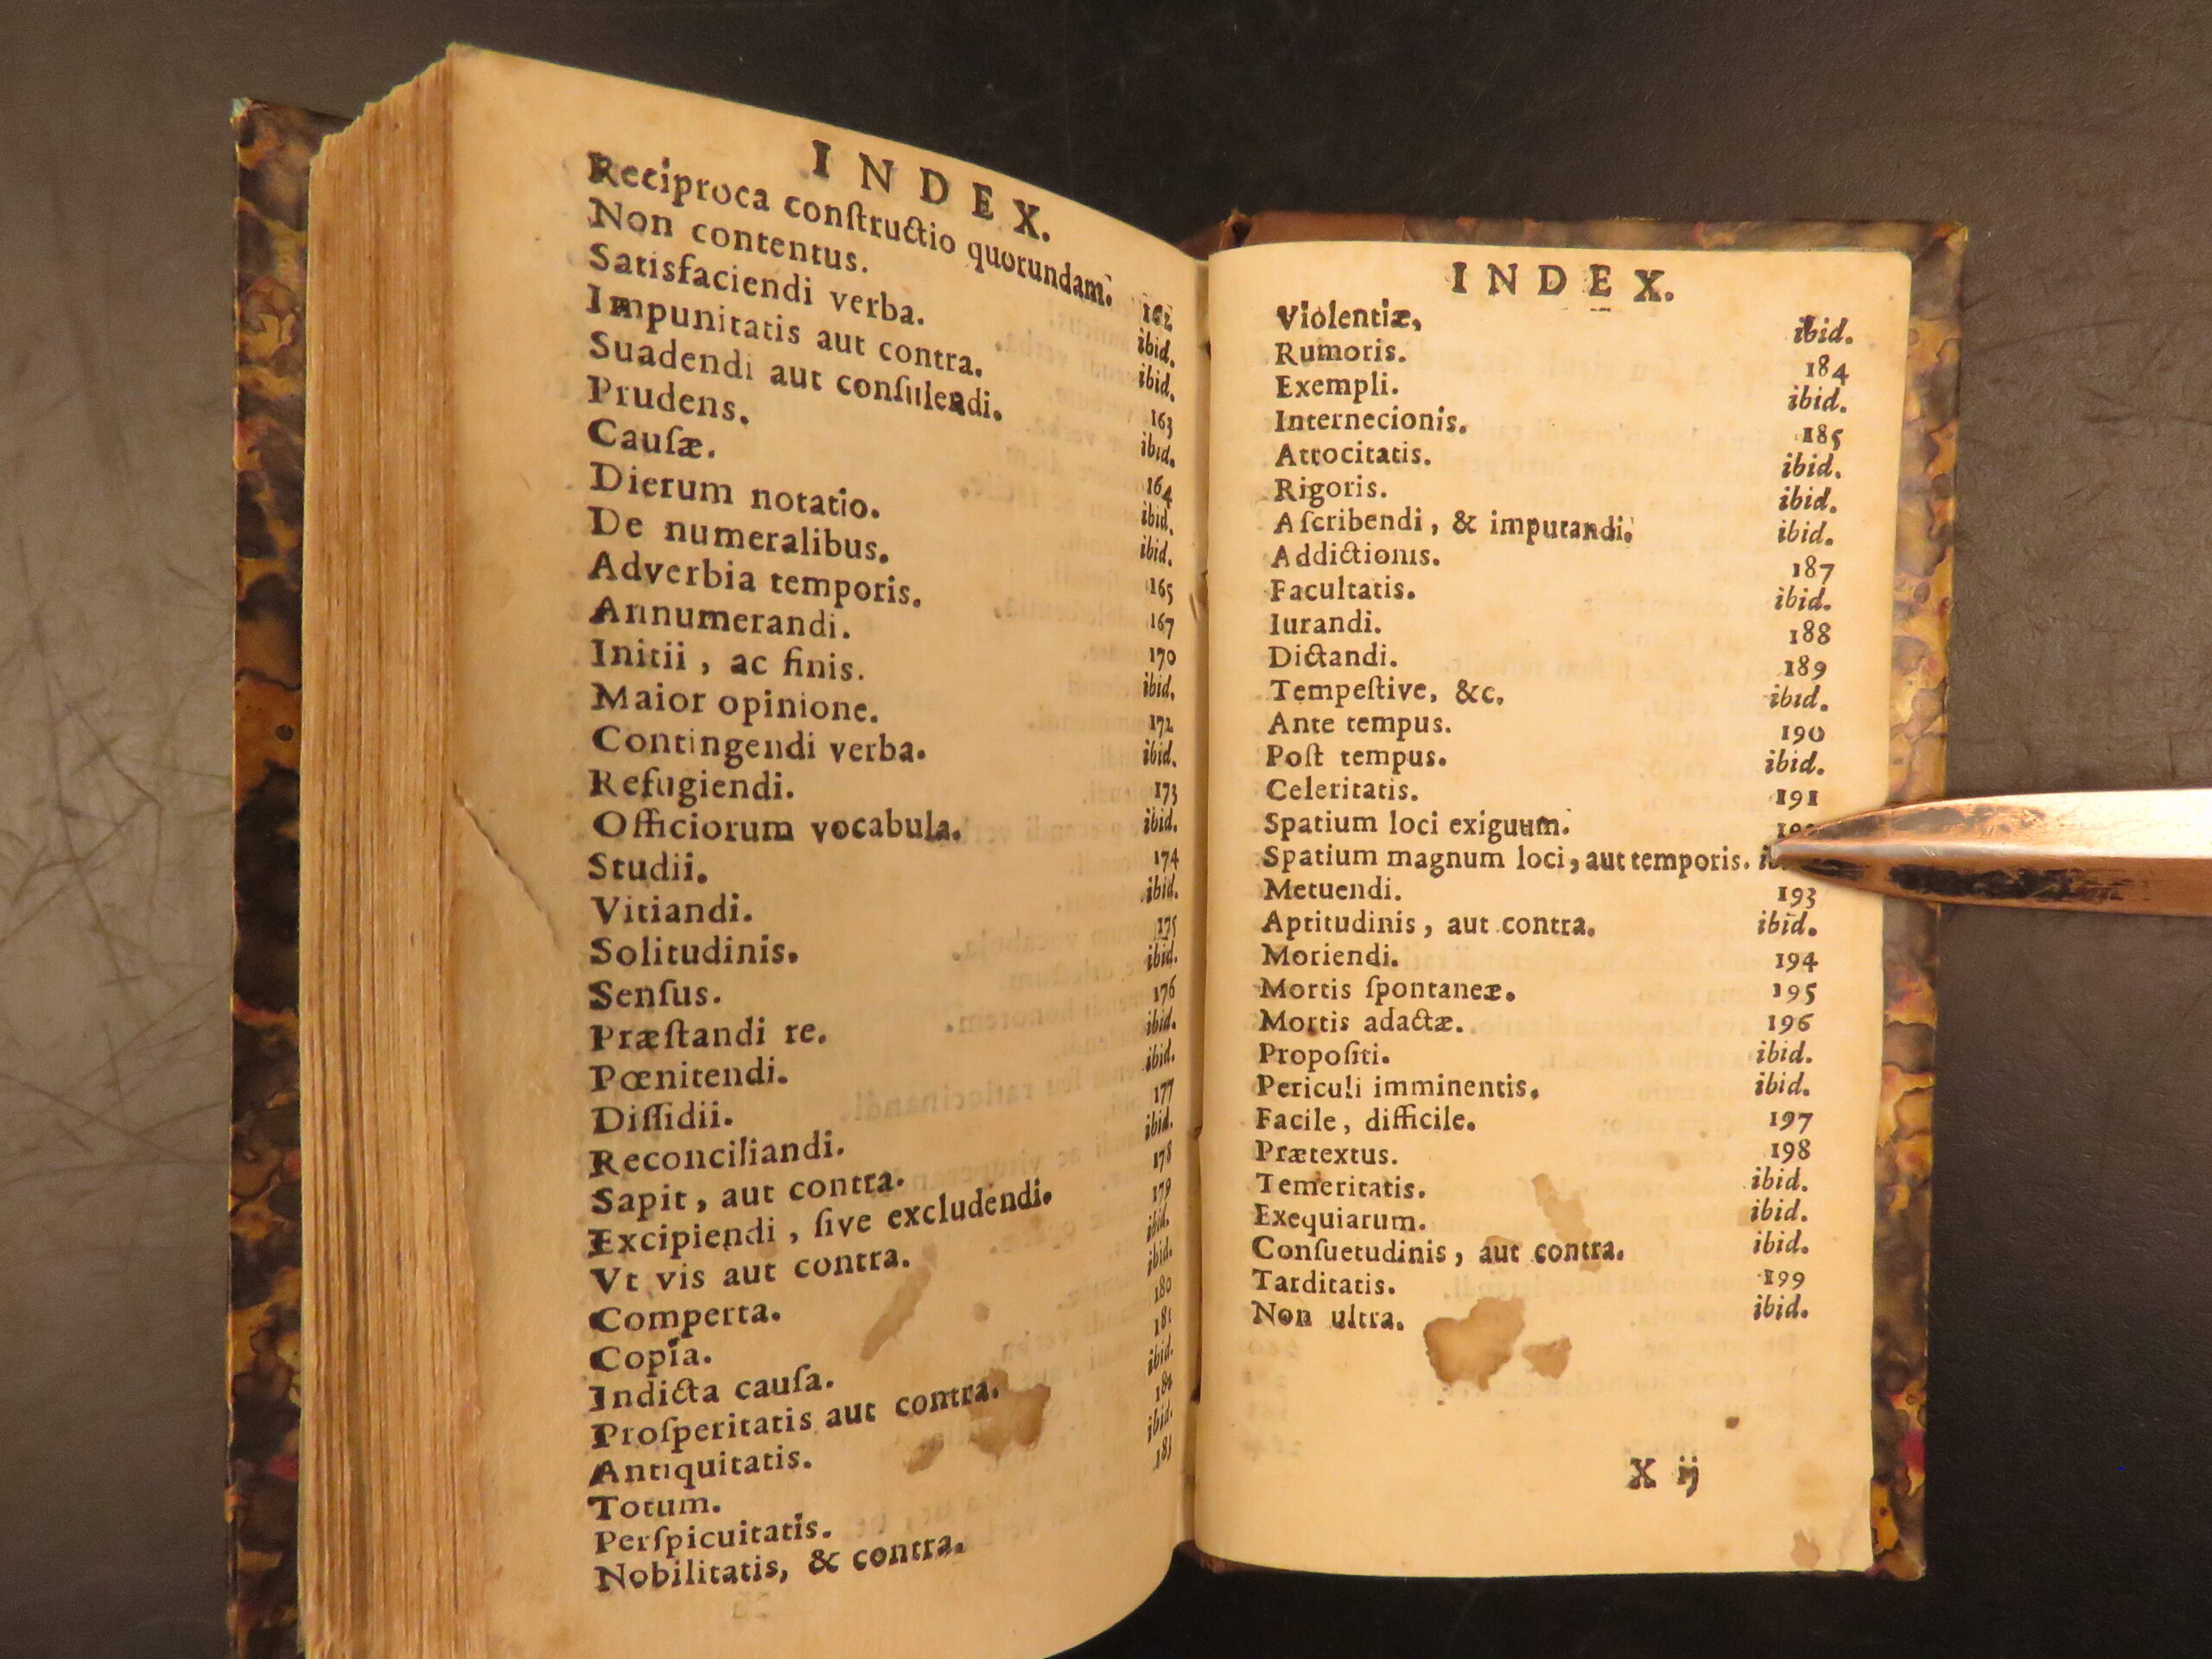 INDEX.
Reciproca conſtructio quorundam. 162
Non contentus. ibid.
Satisfaciendi verba. ibid.
Impunitatis aut contra. 163
Suadendi aut conſulendi. ibid.
Prudens. 164
Cauſæ. ibid.
Dierum notatio. ibid.
De numeralibus. 165
Adverbia temporis. 167
Annumerandi. 170
Initii, ac finis. ibid.
Maior opinione. 172
Contingendi verba. ibid.
Refugiendi. 173
Officiorum vocabula. ibid.
Studii. 174
Vitiandi. ibid.
Solitudinis. 175
Senſus. ibid.
Præſtandi re. 176
Pœnitendi. ibid.
Diſſidii. ibid.
Reconciliandi. 177
Sapit, aut contra. ibid.
Excipiendi, ſive excludendi. 178
Vt vis aut contra. 179
Comperta. ibid.
Copia. ibid.
Indicta cauſa. 180
Proſperitatis aut contra. 181
Antiquitatis. ibid.
Totum. 182
Perſpicuitatis. ibid.
Nobilitatis, & contra. 183
INDEX.
Violentiæ, ibid.
Rumoris. 184
Exempli. ibid.
Internecionis. 185
Atrocitatis. ibid.
Rigoris. ibid.
Aſcribendi, & imputandi. ibid.
Addictionis. 187
Facultatis. ibid.
Iurandi. 188
Dictandi. 189
Tempeſtive, &c. ibid.
Ante tempus. 190
Poſt tempus. ibid.
Celeritatis. 191
Spatium loci exiguum.
Spatium magnum loci, aut temporis.
Metuendi. 193
Aptitudinis, aut contra. ibid.
Moriendi. 194
Mortis ſpontaneæ. 195
Mortis adactæ. 196
Propoſiti. ibid.
Periculi imminentis. ibid.
Facile, difficile. 197
Prætextus. 198
Temeritatis. ibid.
Exequiarum. ibid.
Conſuetudinis, aut contra. ibid.
Tarditatis. 199
Non ultra. ibid.
X ij